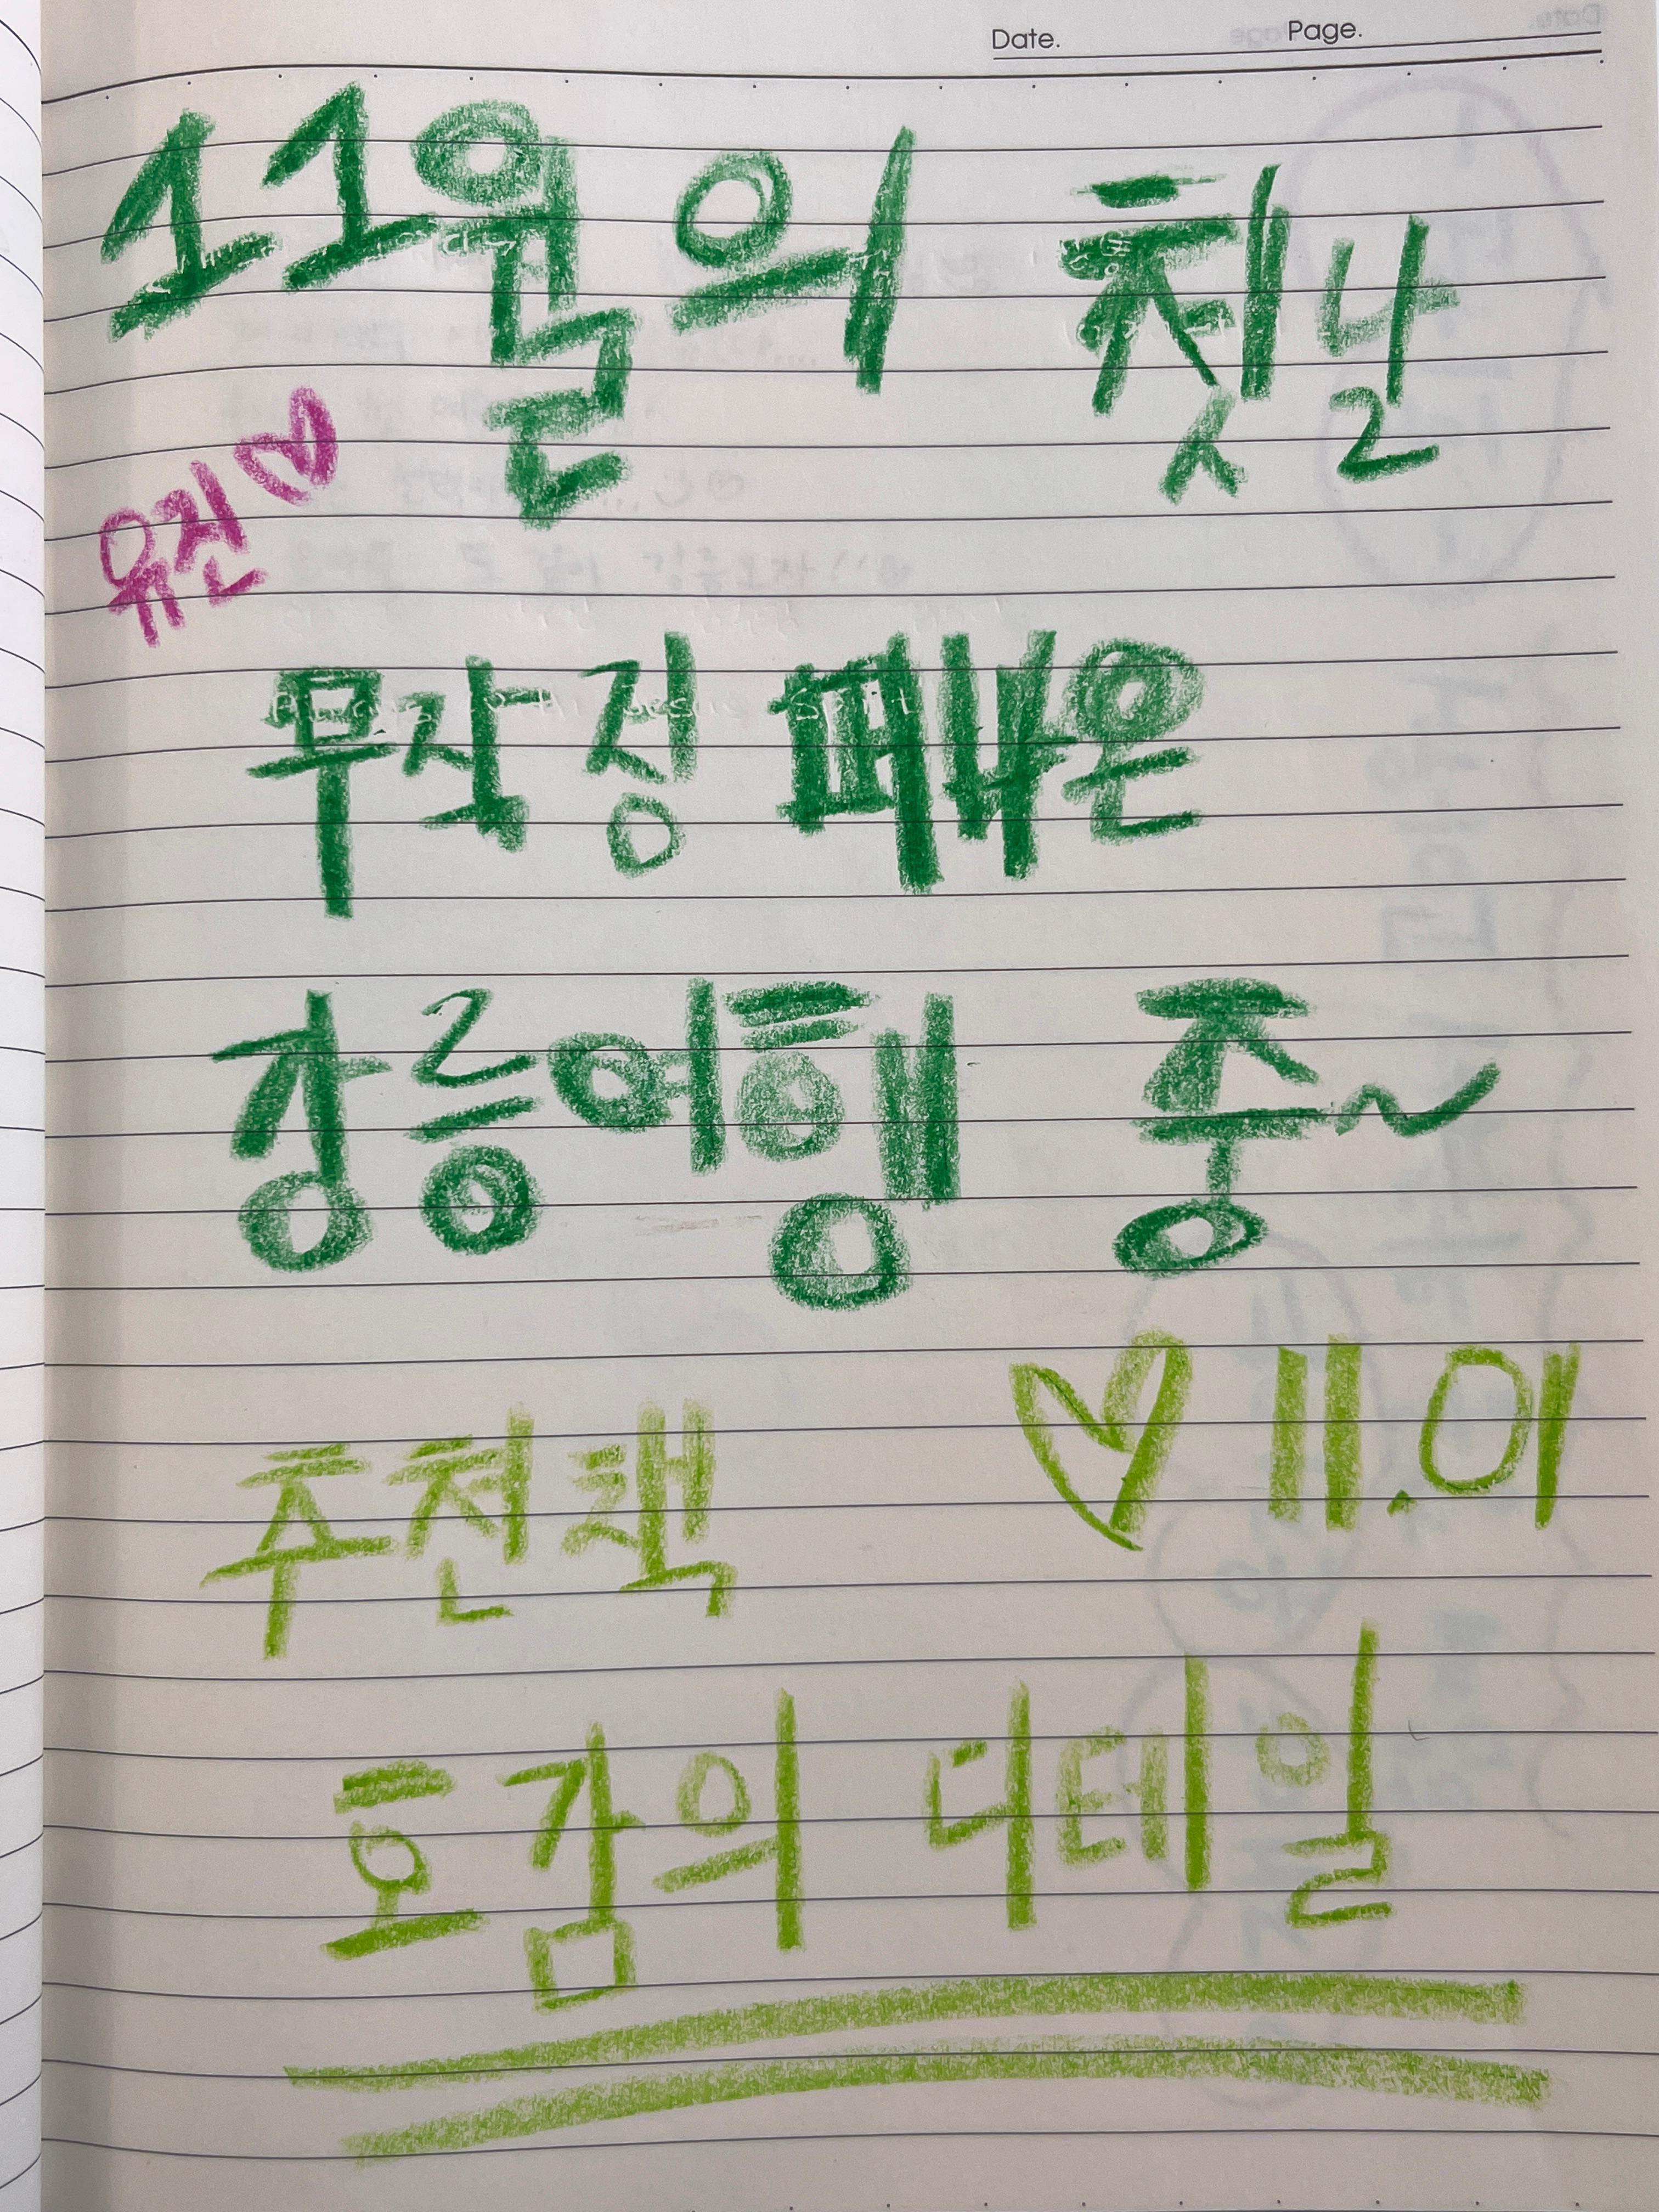 Date. Page.
11월의 첫날
유진♡
무작정 떠나온
강릉여행 중~
♡ 11.01
추천책
호감의 디테일